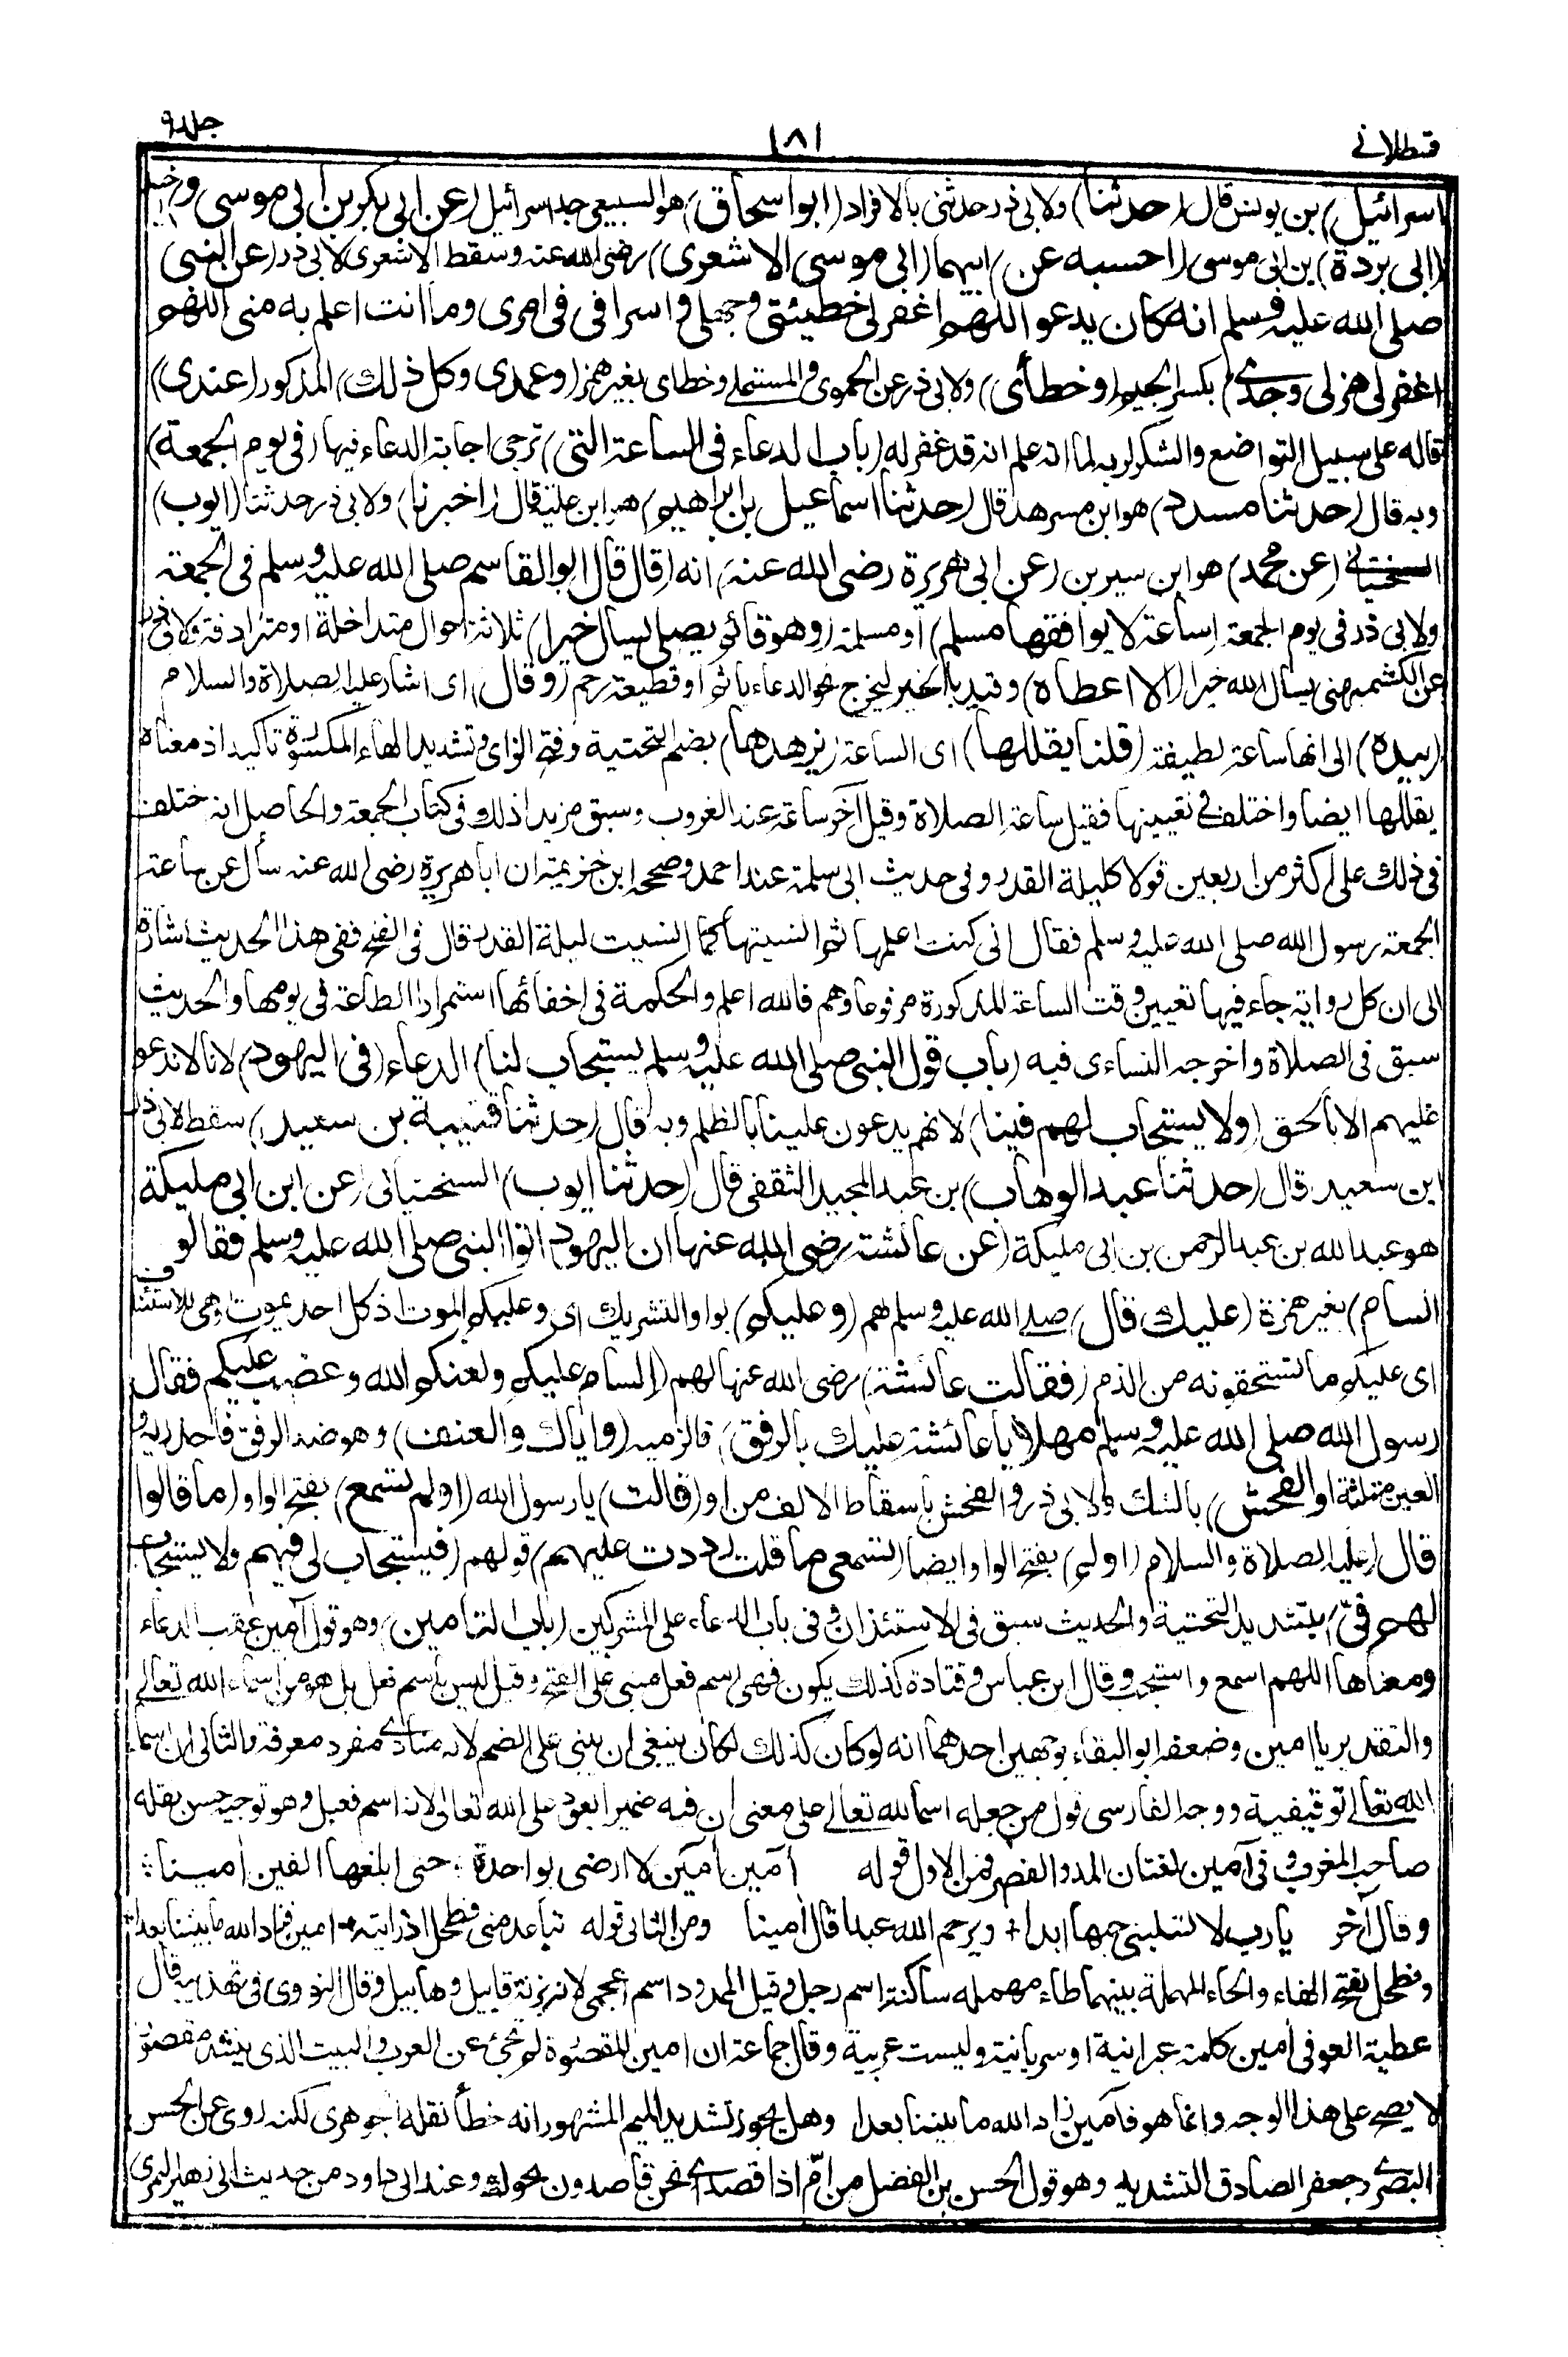 قسطلانى
١٨١
جلد ٩
اسرائيل) بن يونس قال (حدثنا) ولابى ذر حدثنى بالافراد (ابو اسحاق) هو السبيعى جد اسرائيل (عن ابى بكر بن ابى موسى و) اخيه
(ابى بردة) بن ابى موسى (احسبه عن) ابيهما (ابى موسى الاشعرى) رضى الله عنه وسقط الاشعرى لابى ذر (عن النبى
صلى الله عليه وسلم انه كان يدعو اللهم اغفر لى خطيئتى وجهلى واسرافى فى امرى وما انت اعلم به منى اللهم
اغفر لى هزلى وجدى) بكسر الجيم (وخطأى) ولابى ذر عن الحموى والمستملى وخطاى بغير همز (وعمدى وكل ذلك) المذكور (عندى)
قاله على سبيل التواضع والشكر لربه لما انه علم انه قد غفر له (باب الدعاء فى الساعة التى) ترجى اجابة الدعاء فيها (فى يوم الجمعة)
وبه قال (حدثنا مسدد) هو ابن مسرهد قال (حدثنا اسماعيل بن ابراهيم) هو ابن علية قال (اخبرنا) ولابى ذر حدثنا (ايوب)
السختيانى (عن محمد) هو ابن سيرين (عن ابى هريرة رضى الله عنه) انه (قال قال ابو القاسم صلى الله عليه وسلم فى الجمعة
ولابى ذر فى يوم الجمعة (ساعة لا يوافقها مسلم) او مسلمة (وهو قائم يصلى يسال خيرا) ثلاثة احوال متداخلة او مترادفة ولابى ذر
عن الكشميهنى يسال الله خيرا (الا اعطاه) وقيد بالخير ليخرج نحو الدعاء باثم او قطيعة رحم (وقال) اى اشار عليه الصلاة والسلام
(بيده) الى انها ساعة لطيفة (قلنا يقللها) اى الساعة (يزهدها) بضم التحتية وفتح الزاى وتشديد الهاء المكسورة تاكيد اذ معناه
يقللها ايضا واختلف فى تعيينها فقيل ساعة الصلاة وقيل آخر ساعة عند الغروب وسبق مزيد لذلك فى كتاب الجمعة والحاصل انه اختلف
فى ذلك على اكثر من اربعين قولا كليلة القدر وفى حديث ابى سلمة عند احمد وصححه ابن خزيمة ان ابا هريرة رضى الله عنه سأل عن ساعة
الجمعة رسول الله صلى الله عليه وسلم فقال انى كنت اعلمها ثم انسيتها كما انسيت ليلة القدر قال فى الفتح ففى هذا الحديث اشارة
الى ان كل رواية جاء فيها تعيين وقت الساعة المذكورة مرفوعا وهم فالله اعلم والحكمة فى اخفائها استمرار الطاعة فى يومها والحديث
سبق فى الصلاة واخرجه النساءى فيه (باب قول النبى صلى الله عليه وسلم يستجاب لنا) الدعاء (فى اليهود) لانا لا ندعو
عليهم الا بالحق (ولا يستجاب لهم فينا) لانهم يدعون علينا بالظلم وبه قال (حدثنا قتيبة بن سعيد) سقط لابى ذر
ابن سعيد قال (حدثنا عبد الوهاب) بن عبد المجيد الثقفى قال (حدثنا ايوب) السختيانى (عن ابن ابى مليكة
هو عبد الله بن عبد الرحمن بن ابى مليكة (عن عائشة رضى الله عنها ان اليهود اتوا النبى صلى الله عليه وسلم فقالو
السام) بغير همزة (عليك قال) صلى الله عليه وسلم لهم (وعليكم) بواو التشريك اى وعليكم الموت اذ كل احد يموت او هى للاستئناف
اى عليكم ما تستحقونه من الذم (فقالت عائشة) رضى الله عنها لهم (السام عليكم ولعنكم الله وغضب عليكم فقال
رسول الله صلى الله عليه وسلم مهلا يا عائشة عليك بالرفق) فالزميه (واياك والعنف) وهو ضد الرفق فاحذريه و
العين مثلثة (او الفحش) بالشك ولابى ذر والفحش باسقاط الالف من او (قالت) يا رسول الله (اولم تسمع) بفتح الواو (ما قالوا
قال) عليه الصلاة والسلام (اولم) بفتح الواو ايضا (تسمعى ما قلت رددت عليهم) قولهم (فيستجاب لى فيهم ولا يستجاب
لهم فىّ) بتشديد التحتية والحديث سبق فى الاستئذان وفى باب الدعاء على المشركين (باب التامين) وهو قول آمين عقب الدعاء
ومعناها اللهم اسمع واستجب وقال ابن عباس وقتادة كذلك يكون فهى اسم فعل مبنى على الفتح وقيل ليس باسم فعل بل هو من اسماء الله تعالى
والتقدير يا امين وضعفه ابو البقاء بوجهين احدهما انه لو كان كذلك لكان ينبغى ان يبنى على الضم لانه منادى مفرد معرفة والثانى ان اسماء
الله تعالى توقيفية ووجه الفارسى قول من جعله اسما لله تعالى على معنى ان فيه ضميرا يعود على الله تعالى لانه اسم فعل وهو توجيه حسن نقله
صاحب المغرب وفى آمين لغتان المد والقصر فمن الاول قوله آمين آمين لا ارضى بواحدة : حتى ابلغها الفين آمينا :
وقال آخر يا رب لا تسلبنى حبها ابدا + ويرحم الله عبدا قال آمينا ومن الثانى قوله تباعد منى فطحل اذ رايته + امين فزاد الله ما بيننا بعدا
وفطحل بفتح الفاء والحاء المهملة بينهما طاء مهملة ساكنة اسم رجل وقيل الممدود اسم اعجمى لانه بزنة قابيل وهابيل وقال النووى فى تهذيبه قال
عطية العوفى آمين كلمة عبرانية او سريانية وليست عربية وقال جماعة ان امين المقصورة لم تجئ عن العرب والبيت الذى ينشد مقصورا
لا يصح على هذا الوجه وانما هو فآمين زاد الله ما بيننا بعدا وهل يجوز تشديد الميم المشهور انه خطأ نقله الجوهرى لكنه روى عن الحسن
البصرى وجعفر الصادق التشديد وهو قول الحسن بن الفضل من امّ اذا قصد اى نحن قاصدون نحوك وعند ابى داود من حديث ابى زهير النميرى